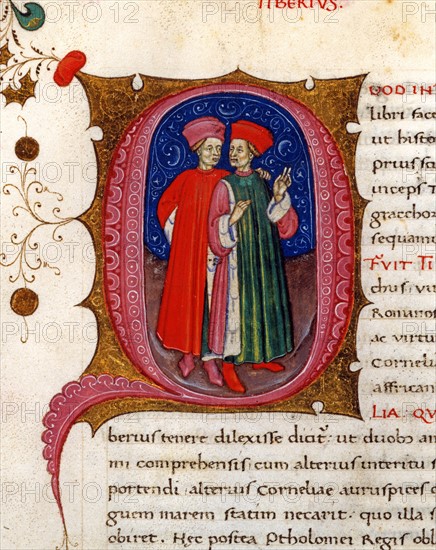 TIBERIVS.
VOD IN
libri face
ut histo
prius sc
inceps T
gracchor
sequam
FVIT TI
chus, vi
Romanos
ac virtu
Corneli
affrican
LIA. QV
berius tenere dilexisse dicit̃: ut duob; an
mi comprehensis cum alterius interitu s
portendi: alterius Corneliae auruspices c
guem marem statim necarit: quo illa s
obiret. Hec postea Ptholomei Regis obl